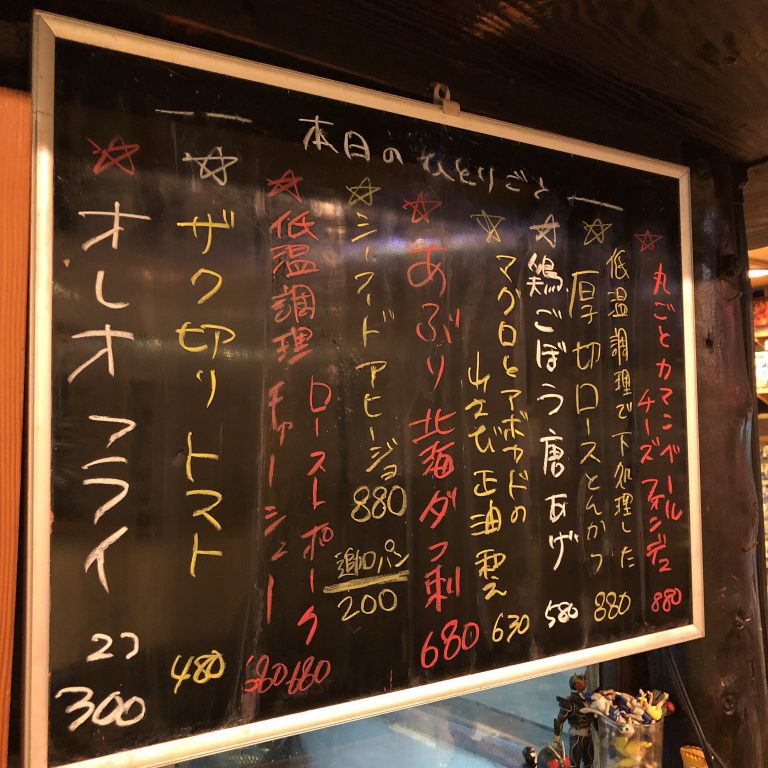 本日のひとりごと
☆丸ごとカマンベール
チーズフォンデュ
880
☆低温調理で下処理した
厚切ロースとんかつ
880
☆鶏ごぼう唐あげ
580
☆マグロとアボカドの
わさび正油和え
630
☆あぶり北海ダコ刺
680
☆シーフードアヒージョ
880
追加パン
200
☆低温調理
ローストポーク
680
チャーシュー
680
☆ザク切りトマト
480
☆オレオフライ
2コ
300